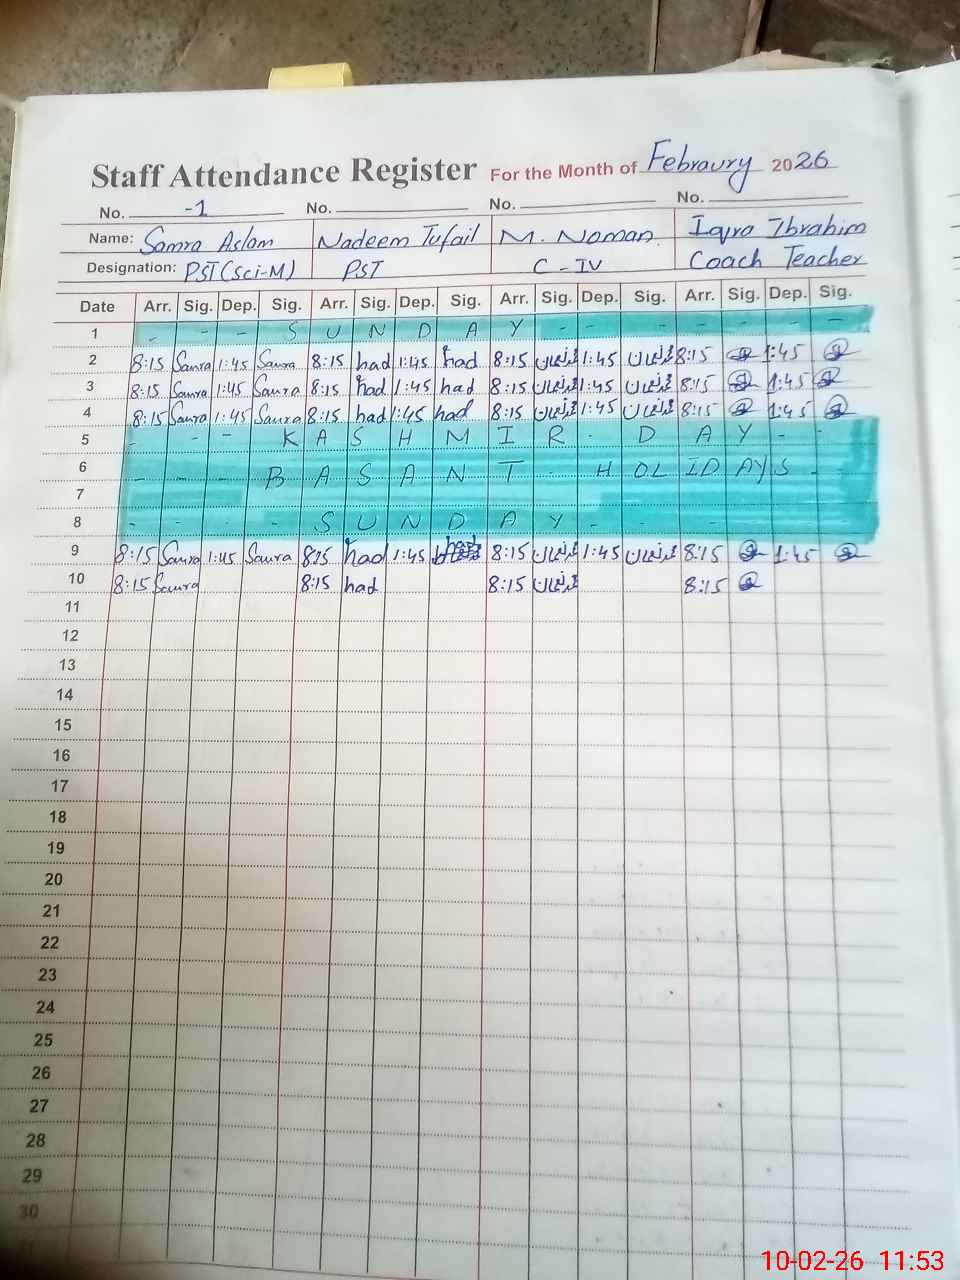 Staff Attendance Register For the Month of Febraury 2026
No. -1 No. No. No.
Name: Samra Aslam Nadeem Tufail M. Noman. Iqra Ibrahim
Designation: PST(Sci-M) PST C-IV Coach Teacher
Date Arr. Sig. Dep. Sig. Arr. Sig. Dep. Sig. Arr. Sig. Dep. Sig. Arr. Sig. Dep. Sig.
1 - - - S U N D A Y - - - - - -
2 8:15 Samra 1:45 Samra 8:15 had 1:45 had 8:15 1:45 8:15 1:45
3 8:15 Samra 1:45 Samra 8:15 had 1:45 had 8:15 1:45 8:15 1:45
4 8:15 Samra 1:45 Samra 8:15 had 1:45 had 8:15 1:45 8:15 1:45
5 - - - K A S H M I R - D A Y - -
6 - - - B A S A N T - H OL ID AY S - -
7
8 - - - - S U N D A Y - - - - -
9 8:15 Samra 1:45 Samra 8:15 had 1:45 8:15 1:45 8:15 1:45
10 8:15 Samra 8:15 had 8:15 8:15
11
12
13
14
15
16
17
18
19
20
21
22
23
24
25
26
27
28
29
30
10-02-26 11:53